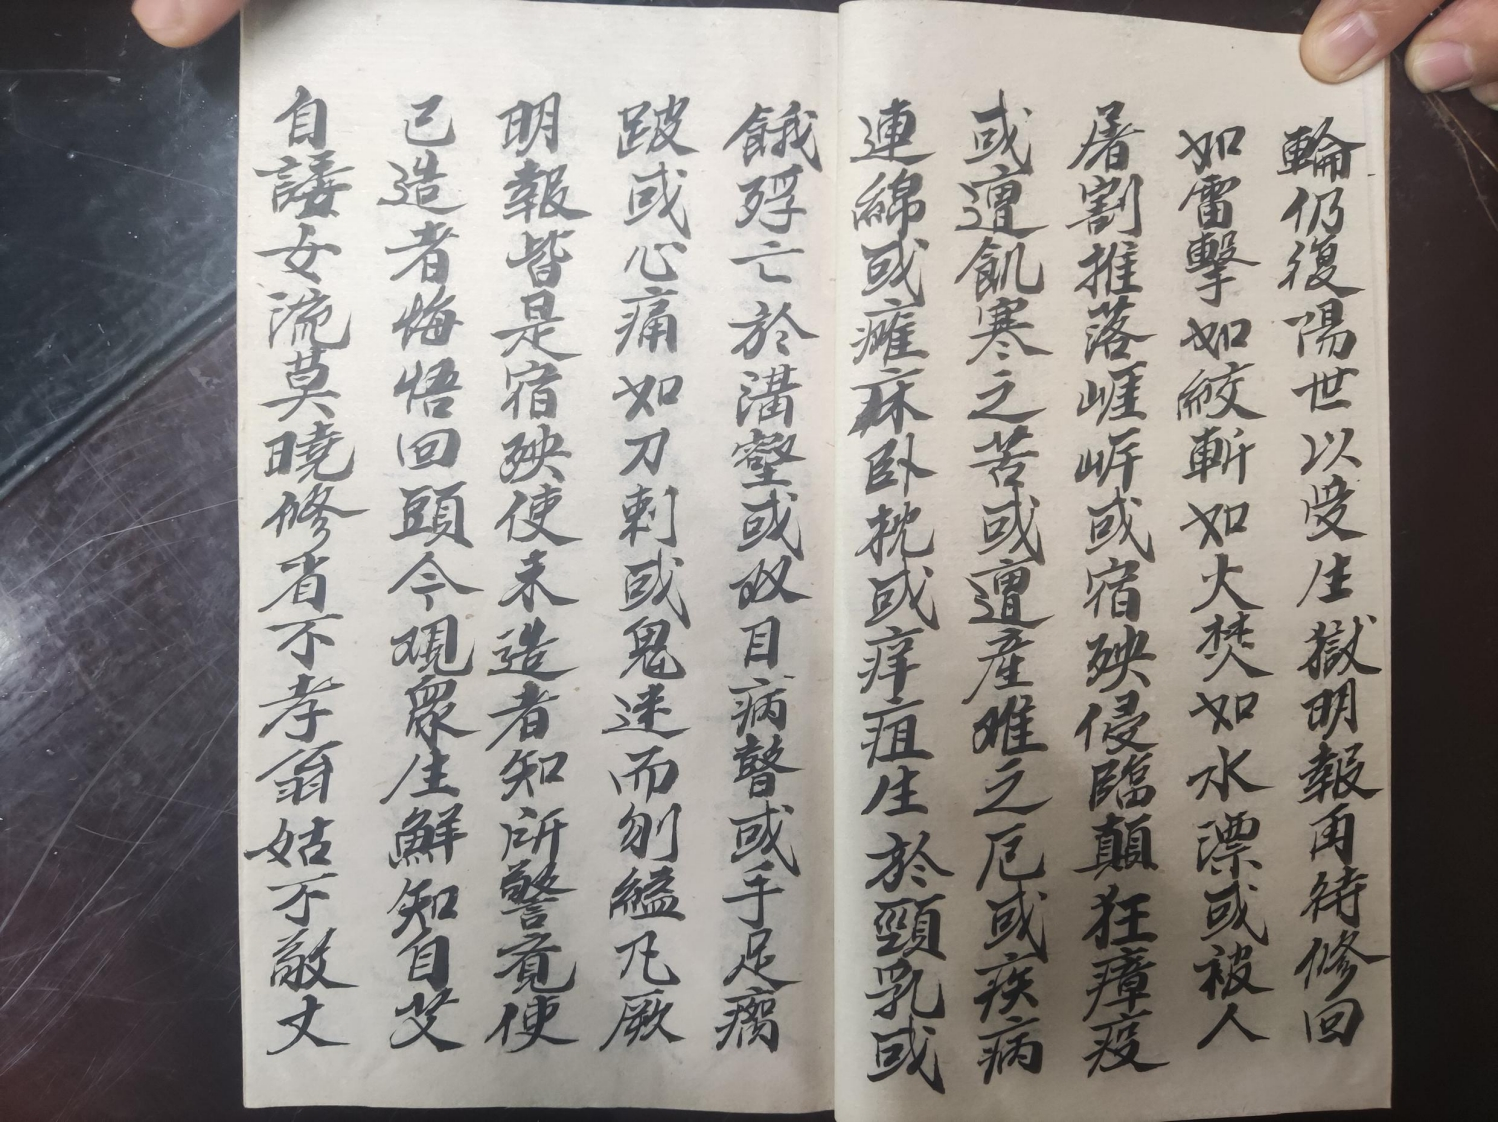 輪仍復陽世以受生獄明報再待修回
如雷擊如絞斬如火焚如水漂或被人
屠割推落崕岸或宿殃侵臨顛狂瘴疫
或遭飢寒之苦或遭產难之厄或疾病
連綿或癱痳卧枕或痒疽生於頸乳或
餓殍亡於溝壑或双目病瞽或手足瘸
跛或心痛如刀刺或鬼迷而刎縊凡厥
明報皆是宿殃使未造者知所警竟使
已造者悔悟回頭今覌衆生鮮知自艾
自諉女流莫曉修省不孝翁姑不敬丈